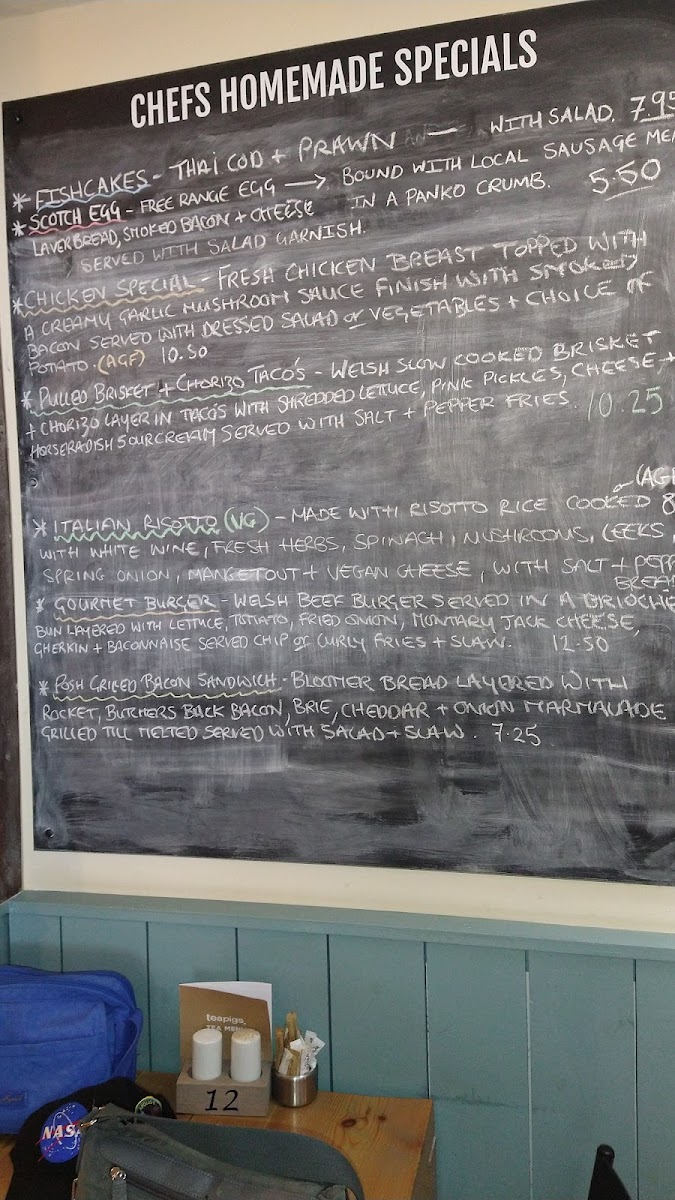 CHEFS HOMEMADE SPECIALS
* FISHCAKES - THAI COD + PRAWN — WITH SALAD. 7.95
* SCOTCH EGG - FREE RANGE EGG → BOUND WITH LOCAL SAUSAGE MEA
LAVERBREAD, SMOKED BACON + CHEESE IN A PANKO CRUMB. 5.50
SERVED WITH SALAD GARNISH.
* CHICKEN SPECIAL - FRESH CHICKEN BREAST TOPPED WITH
A CREAMY GARLIC MUSHROOM SAUCE FINISH WITH SMOKED
BACON SERVED WITH DRESSED SALAD or VEGETABLES + CHOICE OF
POTATO. (AGF) 10.50
* PULLED BRISKET + CHORIZO TACO'S - WELSH SLOW COOKED BRISKET
+ CHORIZO LAYER IN TACO'S WITH SHREDDED LETTUCE, PINK PICKLES, CHEESE +
HORSERADISH SOURCREAM SERVED WITH SALT + PEPPER FRIES. 10.25
(AGF
* ITALIAN RISOTTO (VG) - MADE WITH RISOTTO RICE COOKED 8
WITH WHITE WINE, FRESH HERBS, SPINACH, MUSHROOMS, LEEKS,
SPRING ONION, MANGETOUT + VEGAN CHEESE, WITH SALT + PEPP
BREAD
* GOURMET BURGER - WELSH BEEF BURGER SERVED IN A BRIOCHE
BUN LAYERED WITH LETTUCE, TOMATO, FRIED ONION, MONTARY JACK CHEESE,
GHERKIN + BACONNAISE SERVED CHIP or CURLY FRIES + SLAW. 12.50
* POSH GRILLED BACON SANDWICH - BLOOMER BREAD LAYERED WITH
ROCKET, BUTCHERS BACK BACON, BRIE, CHEDDAR + ONION MARMALADE
GRILLED TILL MELTED SERVED WITH SALAD + SLAW. 7.25
teapigs.
TEA MENU
12
NASA